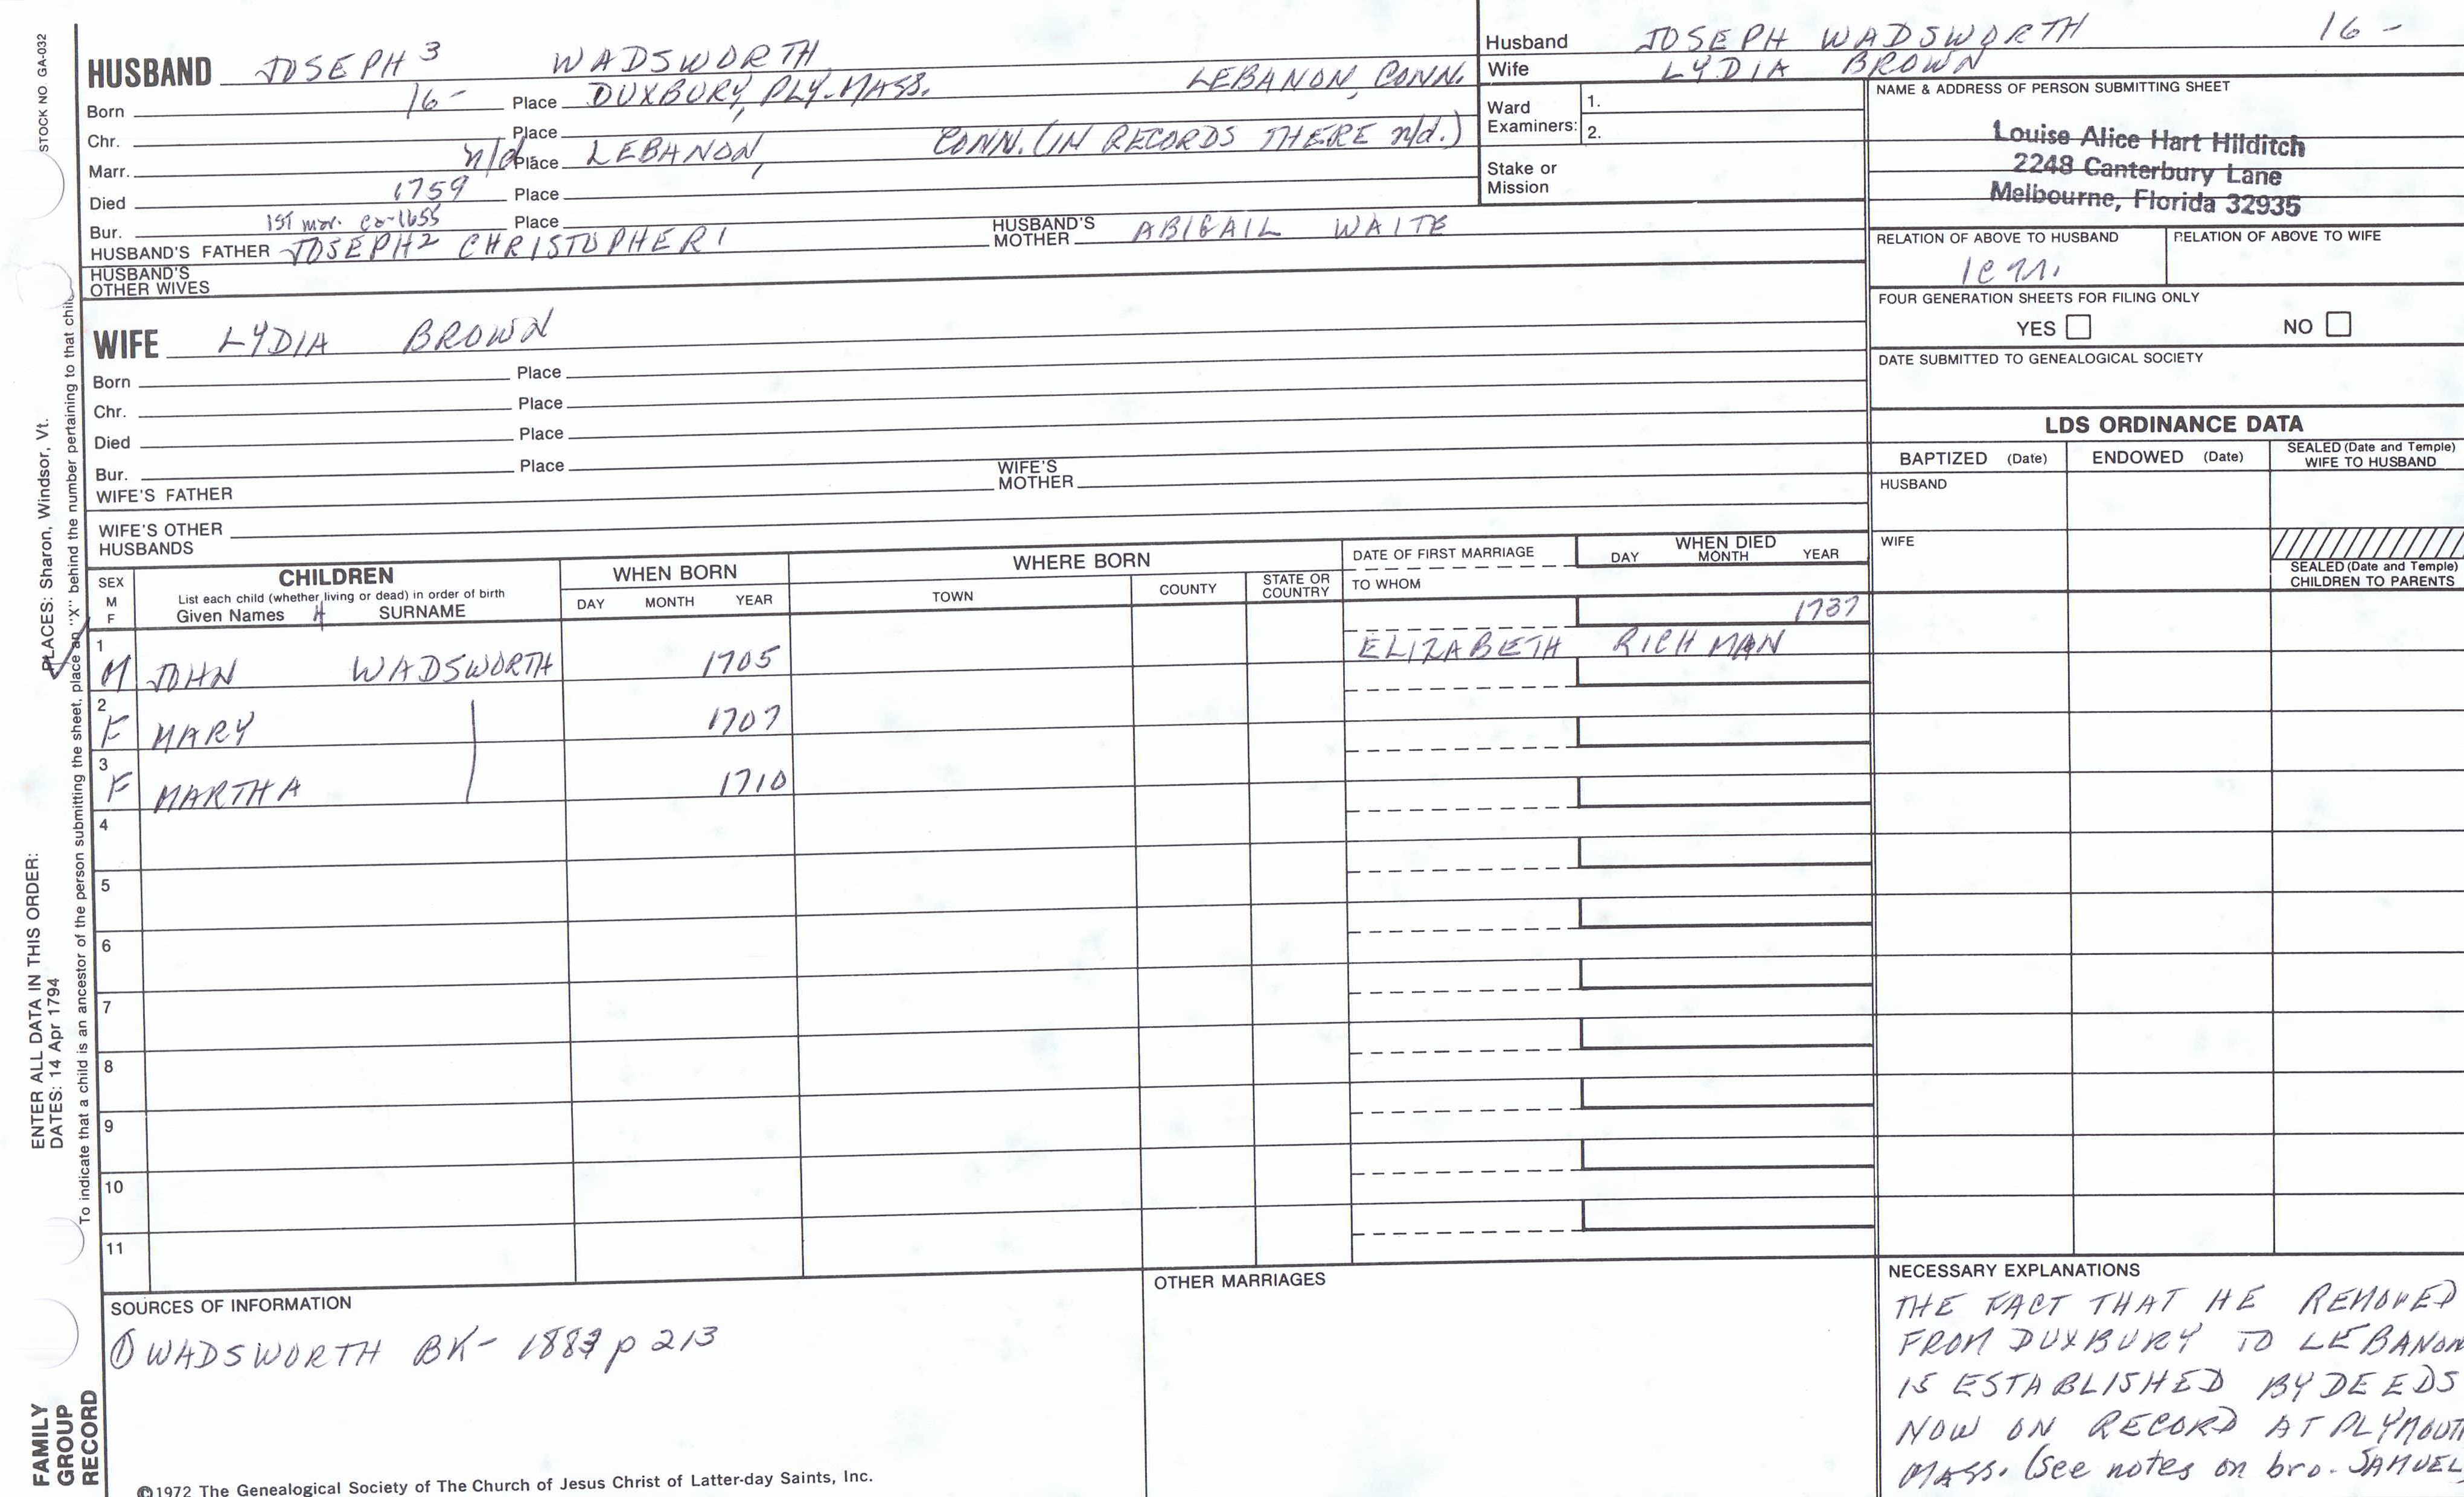 STOCK NO GA-032
HUSBAND JOSEPH 3 WADSWORTH
Born 16- Place DUXBURY, PLY. MASS. LEBANON, CONN.
Chr. Place
Marr. n/d Place LEBANON, CONN. (IN RECORDS THERE n/d.)
Died 1759 Place
Bur. 1ST mar. ca-1655 Place
HUSBAND'S FATHER JOSEPH2 CHRISTOPHER1 HUSBAND'S MOTHER ABIGAIL WAITE
HUSBAND'S OTHER WIVES
WIFE LYDIA BROWN
Born Place
Chr. Place
Died Place
Bur. Place
WIFE'S FATHER WIFE'S MOTHER
WIFE'S OTHER HUSBANDS
Husband JOSEPH WADSWORTH 16-
Wife LYDIA BROWN
Ward Examiners: 1.
2.
Stake or Mission
NAME & ADDRESS OF PERSON SUBMITTING SHEET
Louise Alice Hart Hilditch
2248 Canterbury Lane
Melbourne, Florida 32935
RELATION OF ABOVE TO HUSBAND RELATION OF ABOVE TO WIFE
FOUR GENERATION SHEETS FOR FILING ONLY
YES NO
DATE SUBMITTED TO GENEALOGICAL SOCIETY
LDS ORDINANCE DATA
BAPTIZED (Date) ENDOWED (Date) SEALED (Date and Temple) WIFE TO HUSBAND
HUSBAND
WIFE
SEALED (Date and Temple) CHILDREN TO PARENTS
SEX M F
CHILDREN
List each child (whether living or dead) in order of birth
Given Names SURNAME
WHEN BORN
DAY MONTH YEAR
WHERE BORN
TOWN COUNTY STATE OR COUNTRY
DATE OF FIRST MARRIAGE
TO WHOM
WHEN DIED
DAY MONTH YEAR
1737
1 M JOHN WADSWORTH 1705 ELIZABETH RICHMAN
2 F MARY 1707
3 F MARTHA 1710
4
5
6
7
8
9
10
11
SOURCES OF INFORMATION
① WADSWORTH BK- 1883 p 213
OTHER MARRIAGES
NECESSARY EXPLANATIONS
THE FACT THAT HE REMOVED
FROM DUXBURY TO LEBANON
IS ESTABLISHED BY DEEDS
NOW ON RECORD AT PLYMOUT
MASS. (See notes on bro. SAMUEL
©1972 The Genealogical Society of The Church of Jesus Christ of Latter-day Saints, Inc.
FAMILY GROUP RECORD
ENTER ALL DATA IN THIS ORDER:
DATES: 14 Apr 1794
PLACES: Sharon, Windsor, Vt.
To indicate that a child is an ancestor of the person submitting the sheet, place an "X" behind the number pertaining to that chil